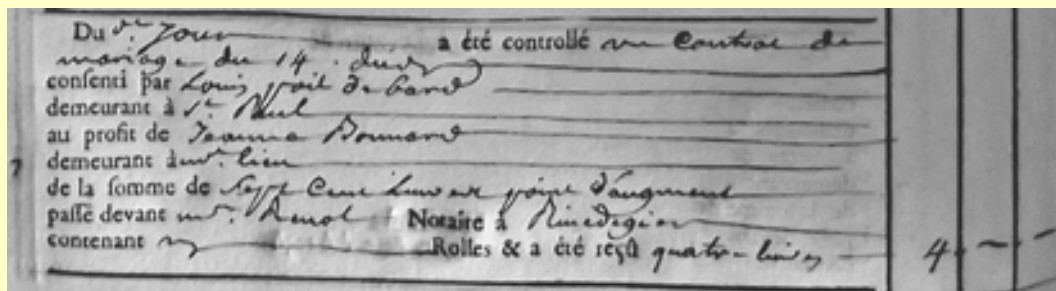 Du d.t Jour a été controllé un Contrat de
mariage du 14. dud.
consenti par Louis poil de bard
demeurant à S.t Paul
au profit de Jeanne Bonnard
demeurant à m. lieu
de la somme de Sept Cent Livres point d'augment
passé devant m.e Notaire à Rivedegier
contenant Rolles & a été reçû quatre livres 4.